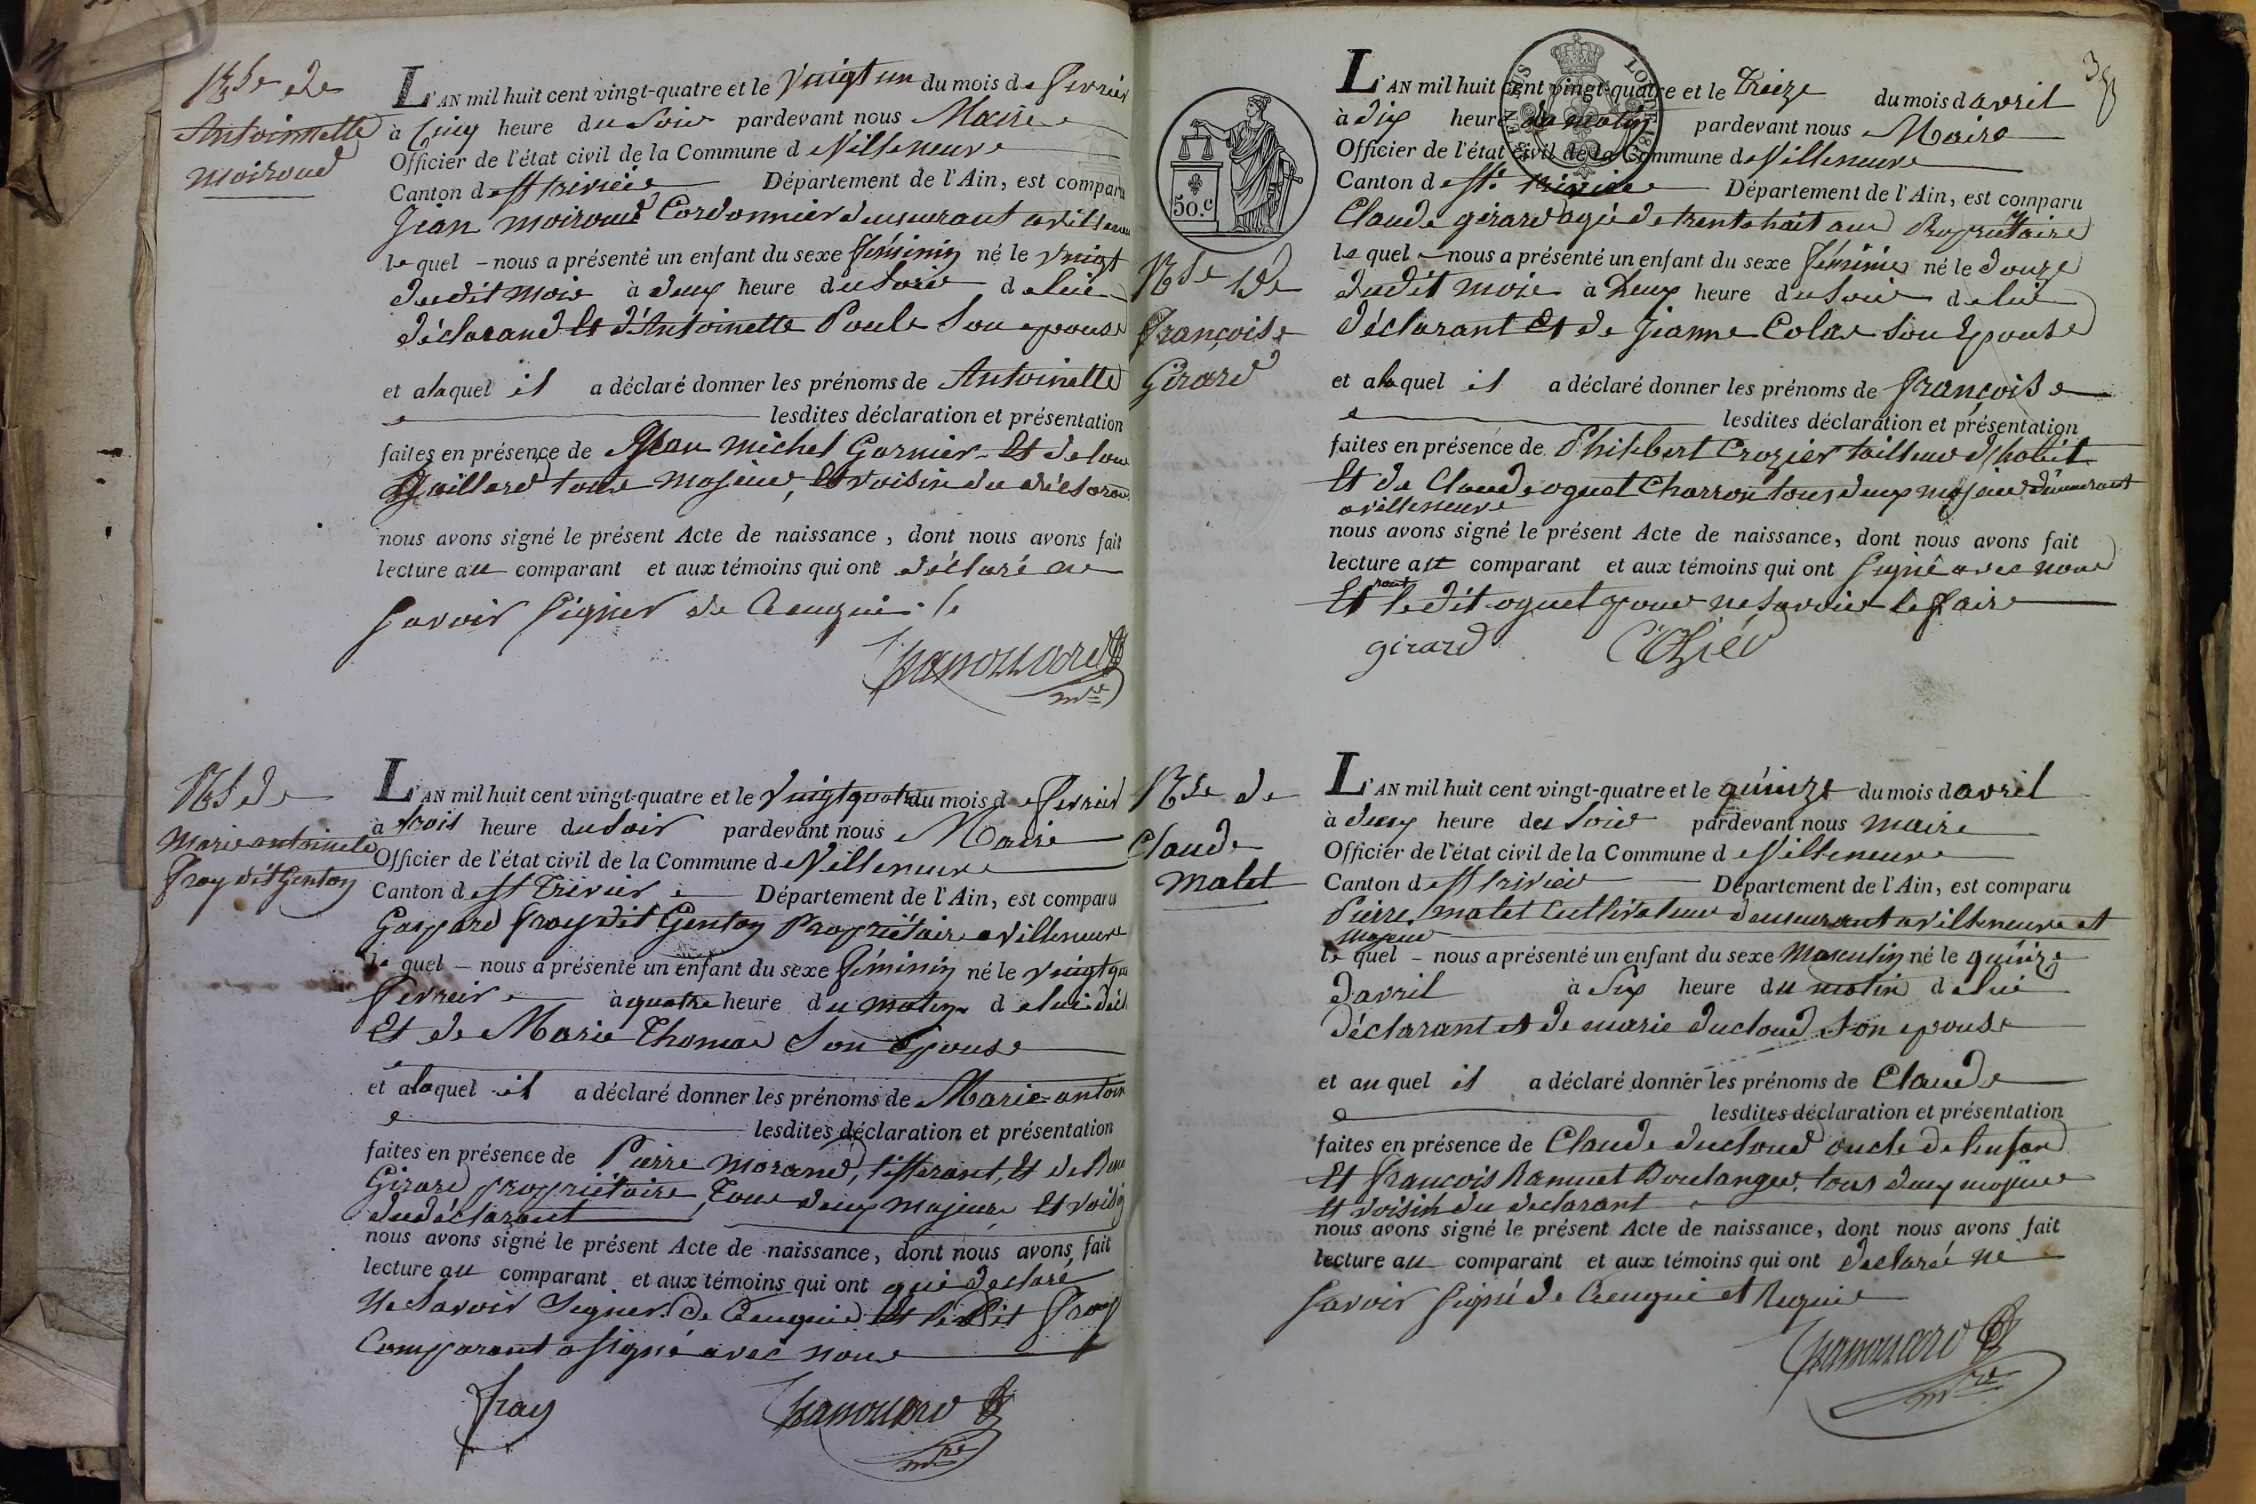 Nse de
Antoinette
moiroud
L'AN mil huit cent vingt-quatre et le Vingt un du mois de fevrier
à Cinq heure du Soir pardevant nous Maire
Officier de l'état civil de la Commune de Villeneuve
Canton de St trivier Département de l'Ain, est comparu
Jean moiroud Cordonnier demeurant a villeneuve
le quel nous a présenté un enfant du sexe féminin né le vingt
dudit mois à deux heure du Soir de lui
déclarand Et d'Antoinette Poule Son epouse
et alaquel il a déclaré donner les prénoms de Antoinette
lesdites déclaration et présentation
faites en présence de Jean michel Garnier Et de
Gaillard tous majeur, Et voisin du déclarant
nous avons signé le présent Acte de naissance, dont nous avons fait
lecture au comparant et aux témoins qui ont déclaré ne
Savoir Signer de Cenquis
Chanouard
mre
Nse de
Marie antoinette
fray dit Genton
L'AN mil huit cent vingt-quatre et le Vingt quatre du mois de fevrier
à trois heure du Soir pardevant nous Maire
Officier de l'état civil de la Commune de Villeneuve
Canton de St Trivier Département de l'Ain, est comparu
Gaspard fray dit Genton Propriétaire a villeneuve
le quel nous a présenté un enfant du sexe féminin né le vingt
fevreir à quatre heure du matin de lui décl
Et de Marie Thomas Son Epouse
et alaquel il a déclaré donner les prénoms de Marie antoin
lesdites déclaration et présentation
faites en présence de Pierre morand, tisserant, Et de
Girard propriétaire, Tous deux majeurs Et voisin
du déclarant
nous avons signé le présent Acte de naissance, dont nous avons fait
lecture au comparant et aux témoins qui ont qui déclaré
Ne Savoir Signer de Cenquis Et le Dit fray
Comparant a signé avec nous
fray Chanouard
mre
38
LOI DE
50.c
Nse de
françoise
Girard
L'AN mil huit cent vingt-quatre et le Treize du mois d avril
à dix heure du matin pardevant nous Maire
Officier de l'état civil de la Commune de Villeneuve
Canton de St. trivier Département de l'Ain, est comparu
Claude girard agé de trente huit ans Propriétaire
le quel nous a présenté un enfant du sexe féminin né le douze
dudit mois à Deux heure du Soir de lui
déclarant Et de Jeanne Colas Son Epouse
et alaquel il a déclaré donner les prénoms de françoise
lesdites déclaration et présentation
faites en présence de Philibert Crozier tailleur d'habit
Et de Claude oguet Charron tous deux majeur demeurant
a villeneuve
nous avons signé le présent Acte de naissance, dont nous avons fait
lecture au comparant et aux témoins qui ont Signé avec nous
Et le dit oguet pour ne Savoir le faire
girard Crozier
Nse de
Claude
malet
L'AN mil huit cent vingt-quatre et le quinze du mois d avril
à deux heure du Soir pardevant nous maire
Officier de l'état civil de la Commune de Villeneuve
Canton de St trivier Département de l'Ain, est comparu
Pierre malet Cultivateur demeurant a villeneuve et
majeur
le quel nous a présenté un enfant du sexe masculin né le quinze
d'avril à Six heure du matin de lui
déclarant et de marie ducloud Son epouse
et au quel il a déclaré donner les prénoms de Claude
lesdites déclaration et présentation
faites en présence de Claude ducloud oncle de lenfan
Et francois Ramuet Boulanger tous deux majeur
Et voisin du declarant
nous avons signé le présent Acte de naissance, dont nous avons fait
lecture au comparant et aux témoins qui ont declaré ne
Savoir Signé de Cenquis et Requis
Chanouard
mre